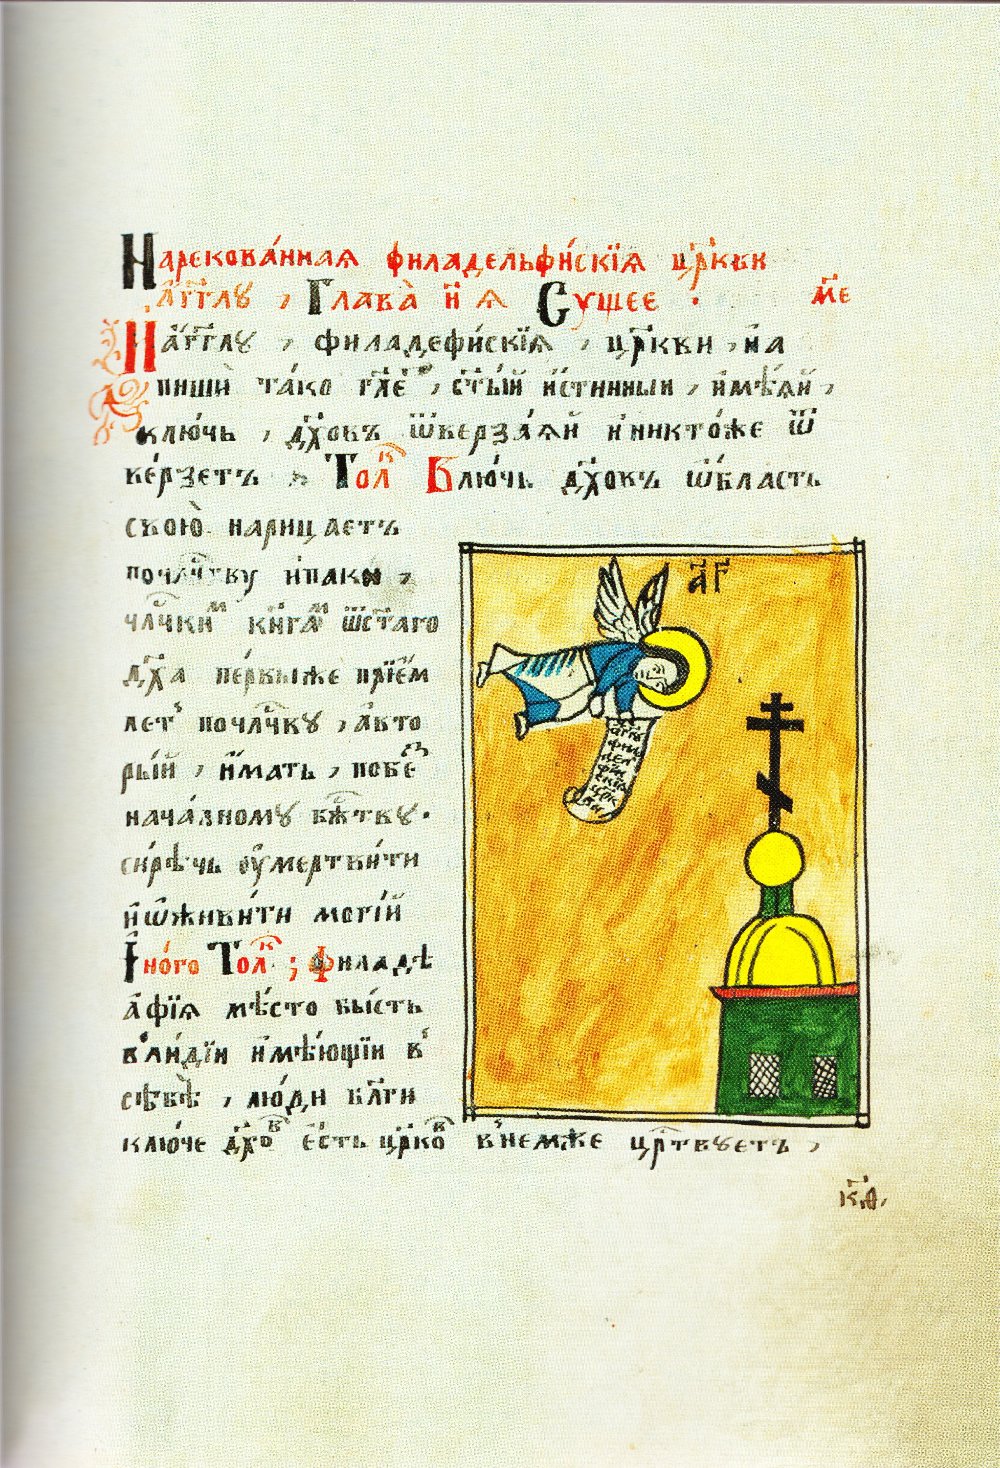 Нарекова́нная филаделъфи́скїя цр҃кви
а҆́гг҃лу , Глава̀ и҃ я Сущее .
м҃е
На́гг҃лꙋ , филадефи́скїѧ , цр҃кви , на
пишѝ та́ко гл҃е , ст҃ы́й и҆́стинныи , и҆мѣ́ѧй ,
клю́чь , дх҃овъ ѿверза́ѧй и҆никто́же ѿ
ве́рзетъ , Толк Ключь дх҃овъ ѿвласть
свою̀ нарицаетъ
и҆паки ,
ѿст҃аго
дх҃а пе́рвыѧже прїе́м
лет почл҃чкꙋ , а҆вто
ры́й , и҆́мать , побе
нача́лномꙋ бж҃ткꙋ .
си́рѣчь оу҆мертви́ти
и҆ѡ҆живи́ти могі́й
І҆но́го Толк ; филаде
а҆фїѧ мѣ́сто бысть
влиді́и и҆мѣ́ющїи в
сѣбѣ̀ , лю́ди бл҃ги
клю́че дх҃ов е҆́сть цр҃ков в немже цр҃твꙋетъ ,
а҃г
к҃а.